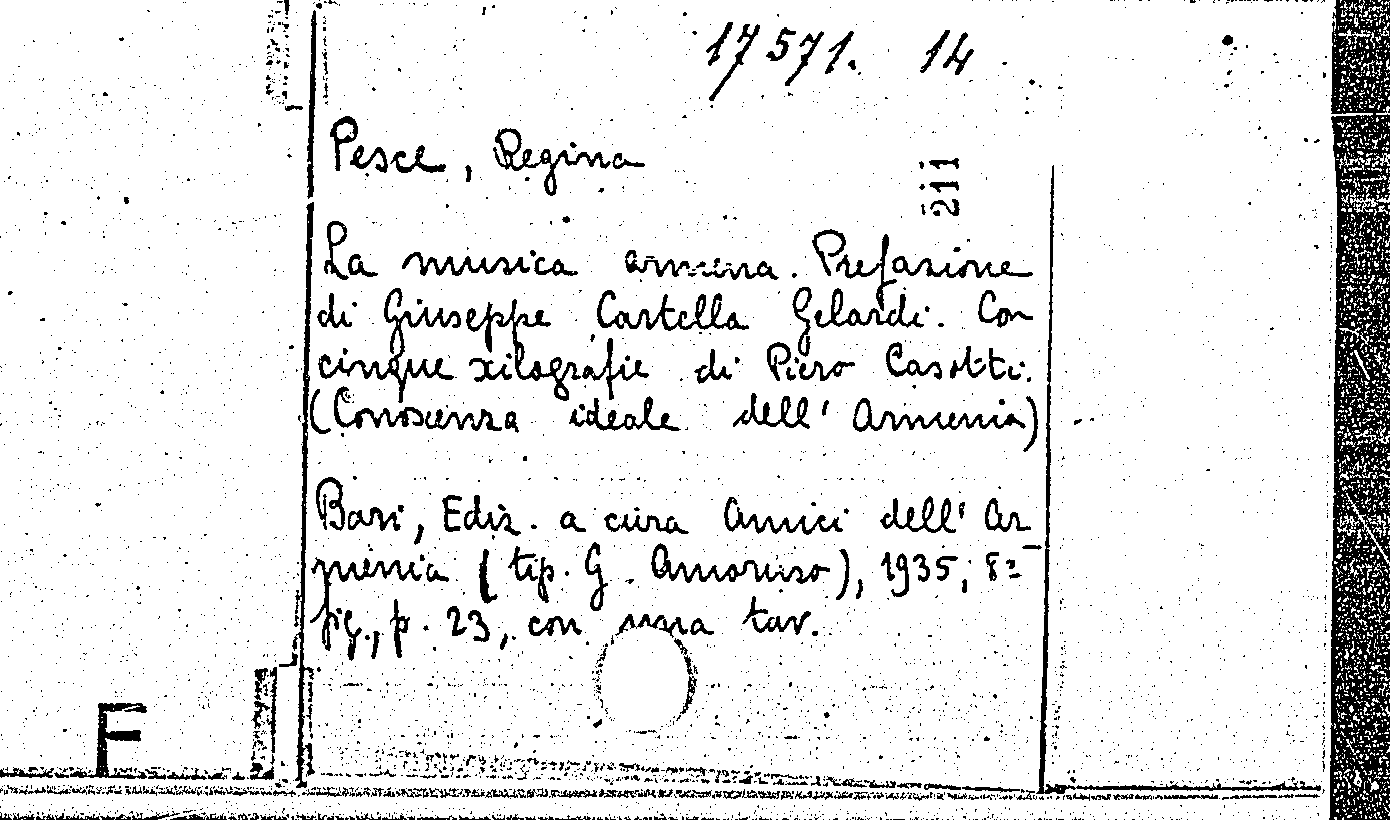 17571. 14
Pesce, Regina
211
La musica armena. Prefazione
di Giuseppe Cartella Gelardi. Con
cinque xilografie di Piero Casotti.
(Conoscenza ideale dell' Armenia)
Bari, Ediz. a cura Amici dell' Ar
menia (tip. G. Amoruso), 1935, 8º
fig., p. 23, con una tav.
F